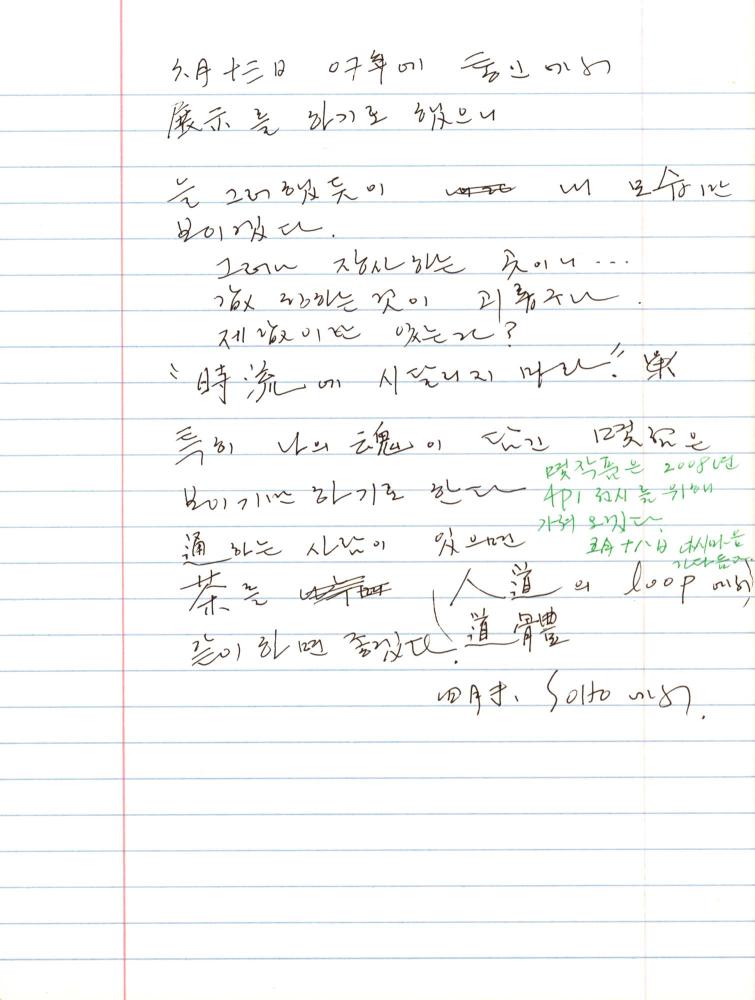 六月 十三日 07年에 통인에서
展示를 하기로 했으니
늘 그러했듯이 내 모습만
보이겠다.
그러나 장사하는 곳이니...
값 정하는 것이 괴롭구나.
제 값이란 있는가?
"時流에 시달리지 마라!"
특히 나의 魂이 담긴 몇점은
보이기만 하기로 한다
몇 작품은 2008년
4P1 전시를 위해
가져 오겠다.
五月 十八日 다시마음
가다듬고
通하는 사람이 있으면
茶를 人道의 loop에서
같이 하면 좋겠다. 道 體
四月末. SOHO에서.